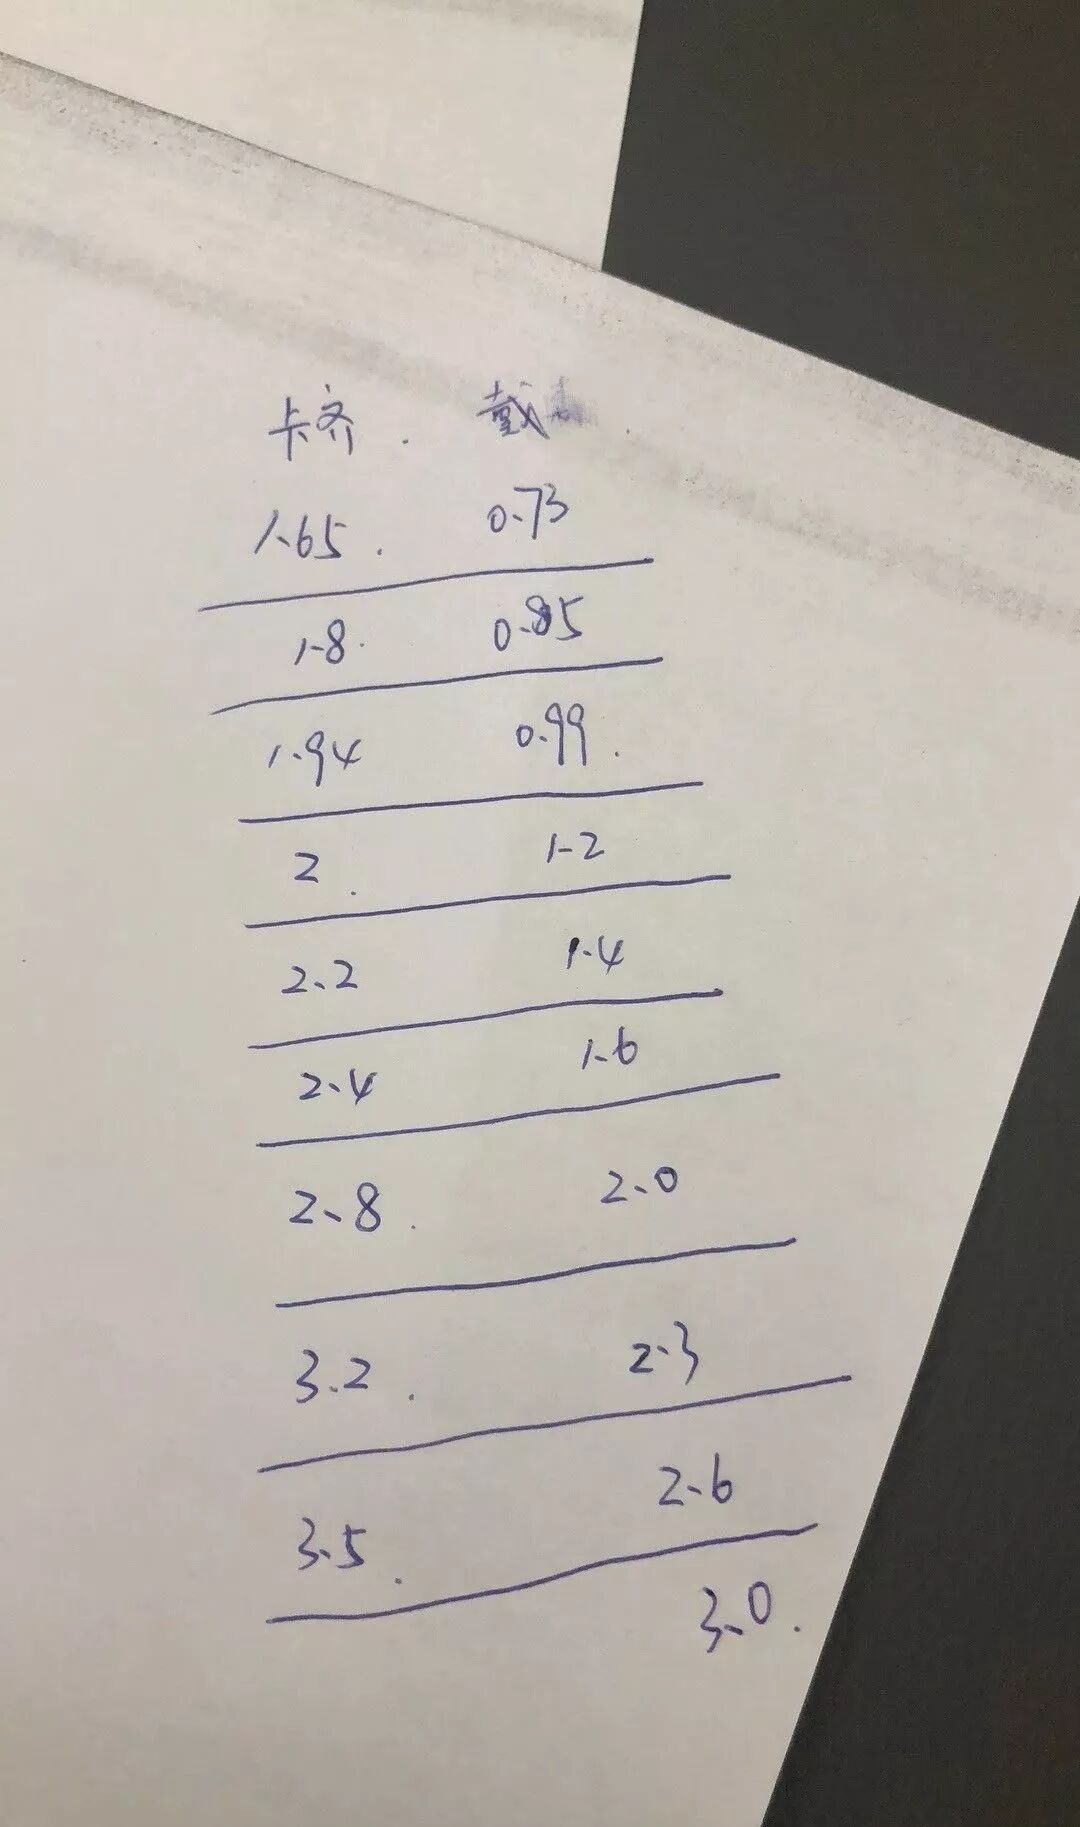 卡齐. 戴
1.65. 0.73
1.8. 0.85
1.94 0.99.
2. 1.2
2.2 1.4
2.4 1.6
2.8. 2.0
3.2. 2.3
3.5. 2.6
3.0.